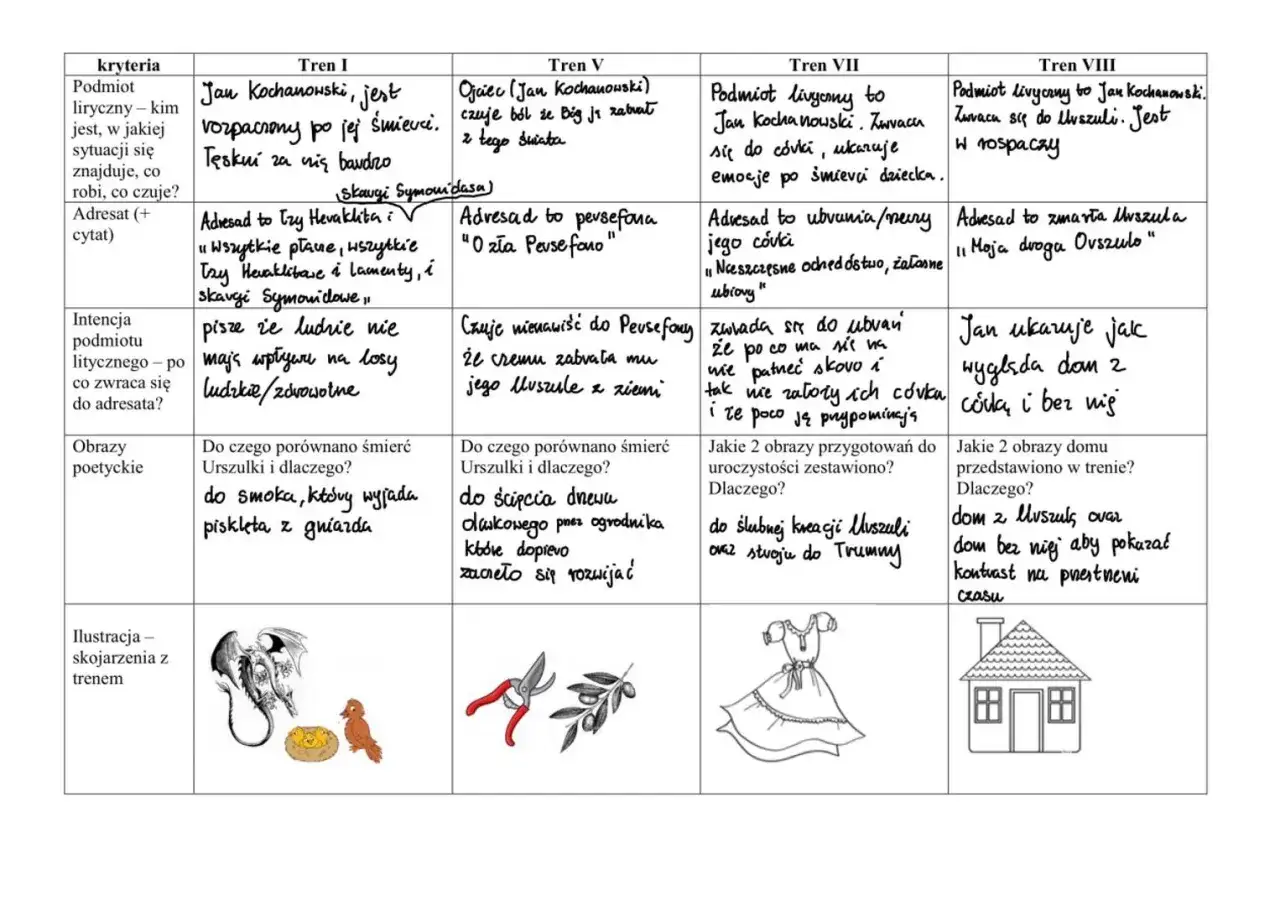 kryteria
Tren I
Tren V
Tren VII
Tren VIII
Podmiot
liryczny – kim
jest, w jakiej
sytuacji się
znajduje, co
robi, co czuje?
Jan Kochanowski, jest
rozpaczony po jej śmierci.
Tęskni za nią bardzo
Ojciec (Jan Kochanowski)
czuje ból że Bóg ją zabrał
z tego świata
Podmiot liryczny to
Jan Kochanowski. Zwraca
się do córki, ukazuje
emocje po śmierci dziecka.
Podmiot liryczny to Jan Kochanowski.
Zwraca się do Urszuli. Jest
w rospaczy
Adresat (+
cytat)
skargi Symonidasa
Adresad to łzy Heraklita i
"Wszytkie płacze, wszytkie
łzy Heraklitowe i lamenty, i
skargi Symonidowe"
Adresad to persefona
"O zła Persefono"
Adresad to ubrania/rzeczy
jego córki
"Nieszczęsne ochędóstwo, żałosne
ubiory"
Adresad to zmarła Urszula
"Moja droga Orszulo"
Intencja
podmiotu
litycznego – po
co zwraca się
do adresata?
pisze że ludzie nie
mają wpływu na losy
ludzkie/zdrowotne
Czuje nienawiść do Persefony
że czemu zabrała mu
jego Urszule z ziemi
zwrada się do ubrań
że po co ma się na
nie patrzeć skoro i
tak nie założy ich córka
i że poco ją przypominają
Jan ukazuje jak
wygląda dom z
córką i bez niej
Obrazy
poetyckie
Do czego porównano śmierć
Urszulki i dlaczego?
do smoka, który wyjada
pisklęta z gniazda
Do czego porównano śmierć
Urszulki i dlaczego?
do ścięcia drzewa
oliwkowego przez ogrodnika
które dopiero
zaczeło się rozwijać
Jakie 2 obrazy przygotowań do
uroczystości zestawiono?
Dlaczego?
do ślubnej kreacji Urszuli
oraz stroju do Trumny
Jakie 2 obrazy domu
przedstawiono w trenie?
Dlaczego?
dom z Urszulą oraz
dom bez niej aby pokazać
kontrast na przestrzeni
czasu
Ilustracja –
skojarzenia z
trenem